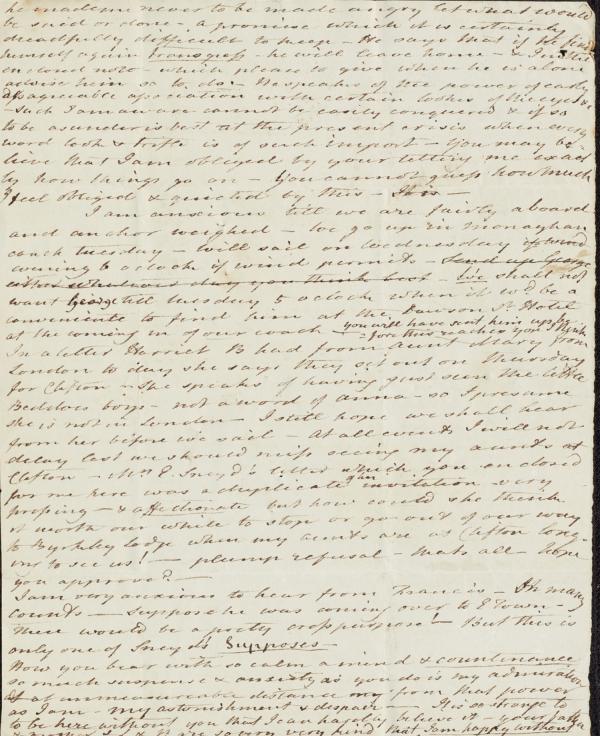 he made me never to be made angry let what would
be said or done - a promise which it is certainly
dreadfully difficult to keep - He says that if he find
himself again transgress he will leave home - &
enclosed note - which please to give when he is alone
advise him so to do - He speaks of the power of early
disagreeable association with certain looks of the eyes &c
- Such I am aware cannot be easily conquered & if so
to be asunder is best at the present crisis when every
word look & trifle is of such import - You may be-
lieve that I am obliged by your letting me exact
ly how things go on - You cannot guess how much
I feel obliged & quieted by this - This -
I am anxious till we are fairly aboard
and anchor weighed - We go up in Monaghan
coach tuesday - Will sail on Wednesday if wind
evening 6 oclock if wind permits - Send up George
whatever day you think best - We shall not
want George till tuesday 5 oclock when it wd be a
convenience to find him at the Dawson St. Hotel
at the coming in of our coach - you will have sent him up be-
fore this reaches you I think
In a letter Harriet B had from Aunt Mary from
London to day she says they set out on Thursday
for Clifton - She speaks of having just seen the little
Beddoes boys - not a word of Anna - so I presume
she is not in London - I still hope we shall hear
from her before we sail - At all events I will not
delay lest we should miss seeing my aunts at
Clifton - Mrs E. Sneyd's letter which you enclosed
for me here was a duplicate invitation very
pressing - & affectionate but how could she think
it worth our while to stop or go out of our way
to Byrkley lodge when my aunts are at Clifton long-
ing to see us! - plump refusal - thats all - hope
you approve? -
I am very anxious to hear from Francis - On many
counts - Suppose he was coming over to E Town -
There would be a pretty cross purpose - But this is
only one of Sneyd's Supposes -
How you bear with so calm a mind & countenance
so much suspense & anxiety as you do is my admiration
at an immeasurable distance my from that power
as I am - my astonishment & despair - It is so strange to
to be here without you that I can hardly believe it - your father
& mother are so very very kind that I am happy without